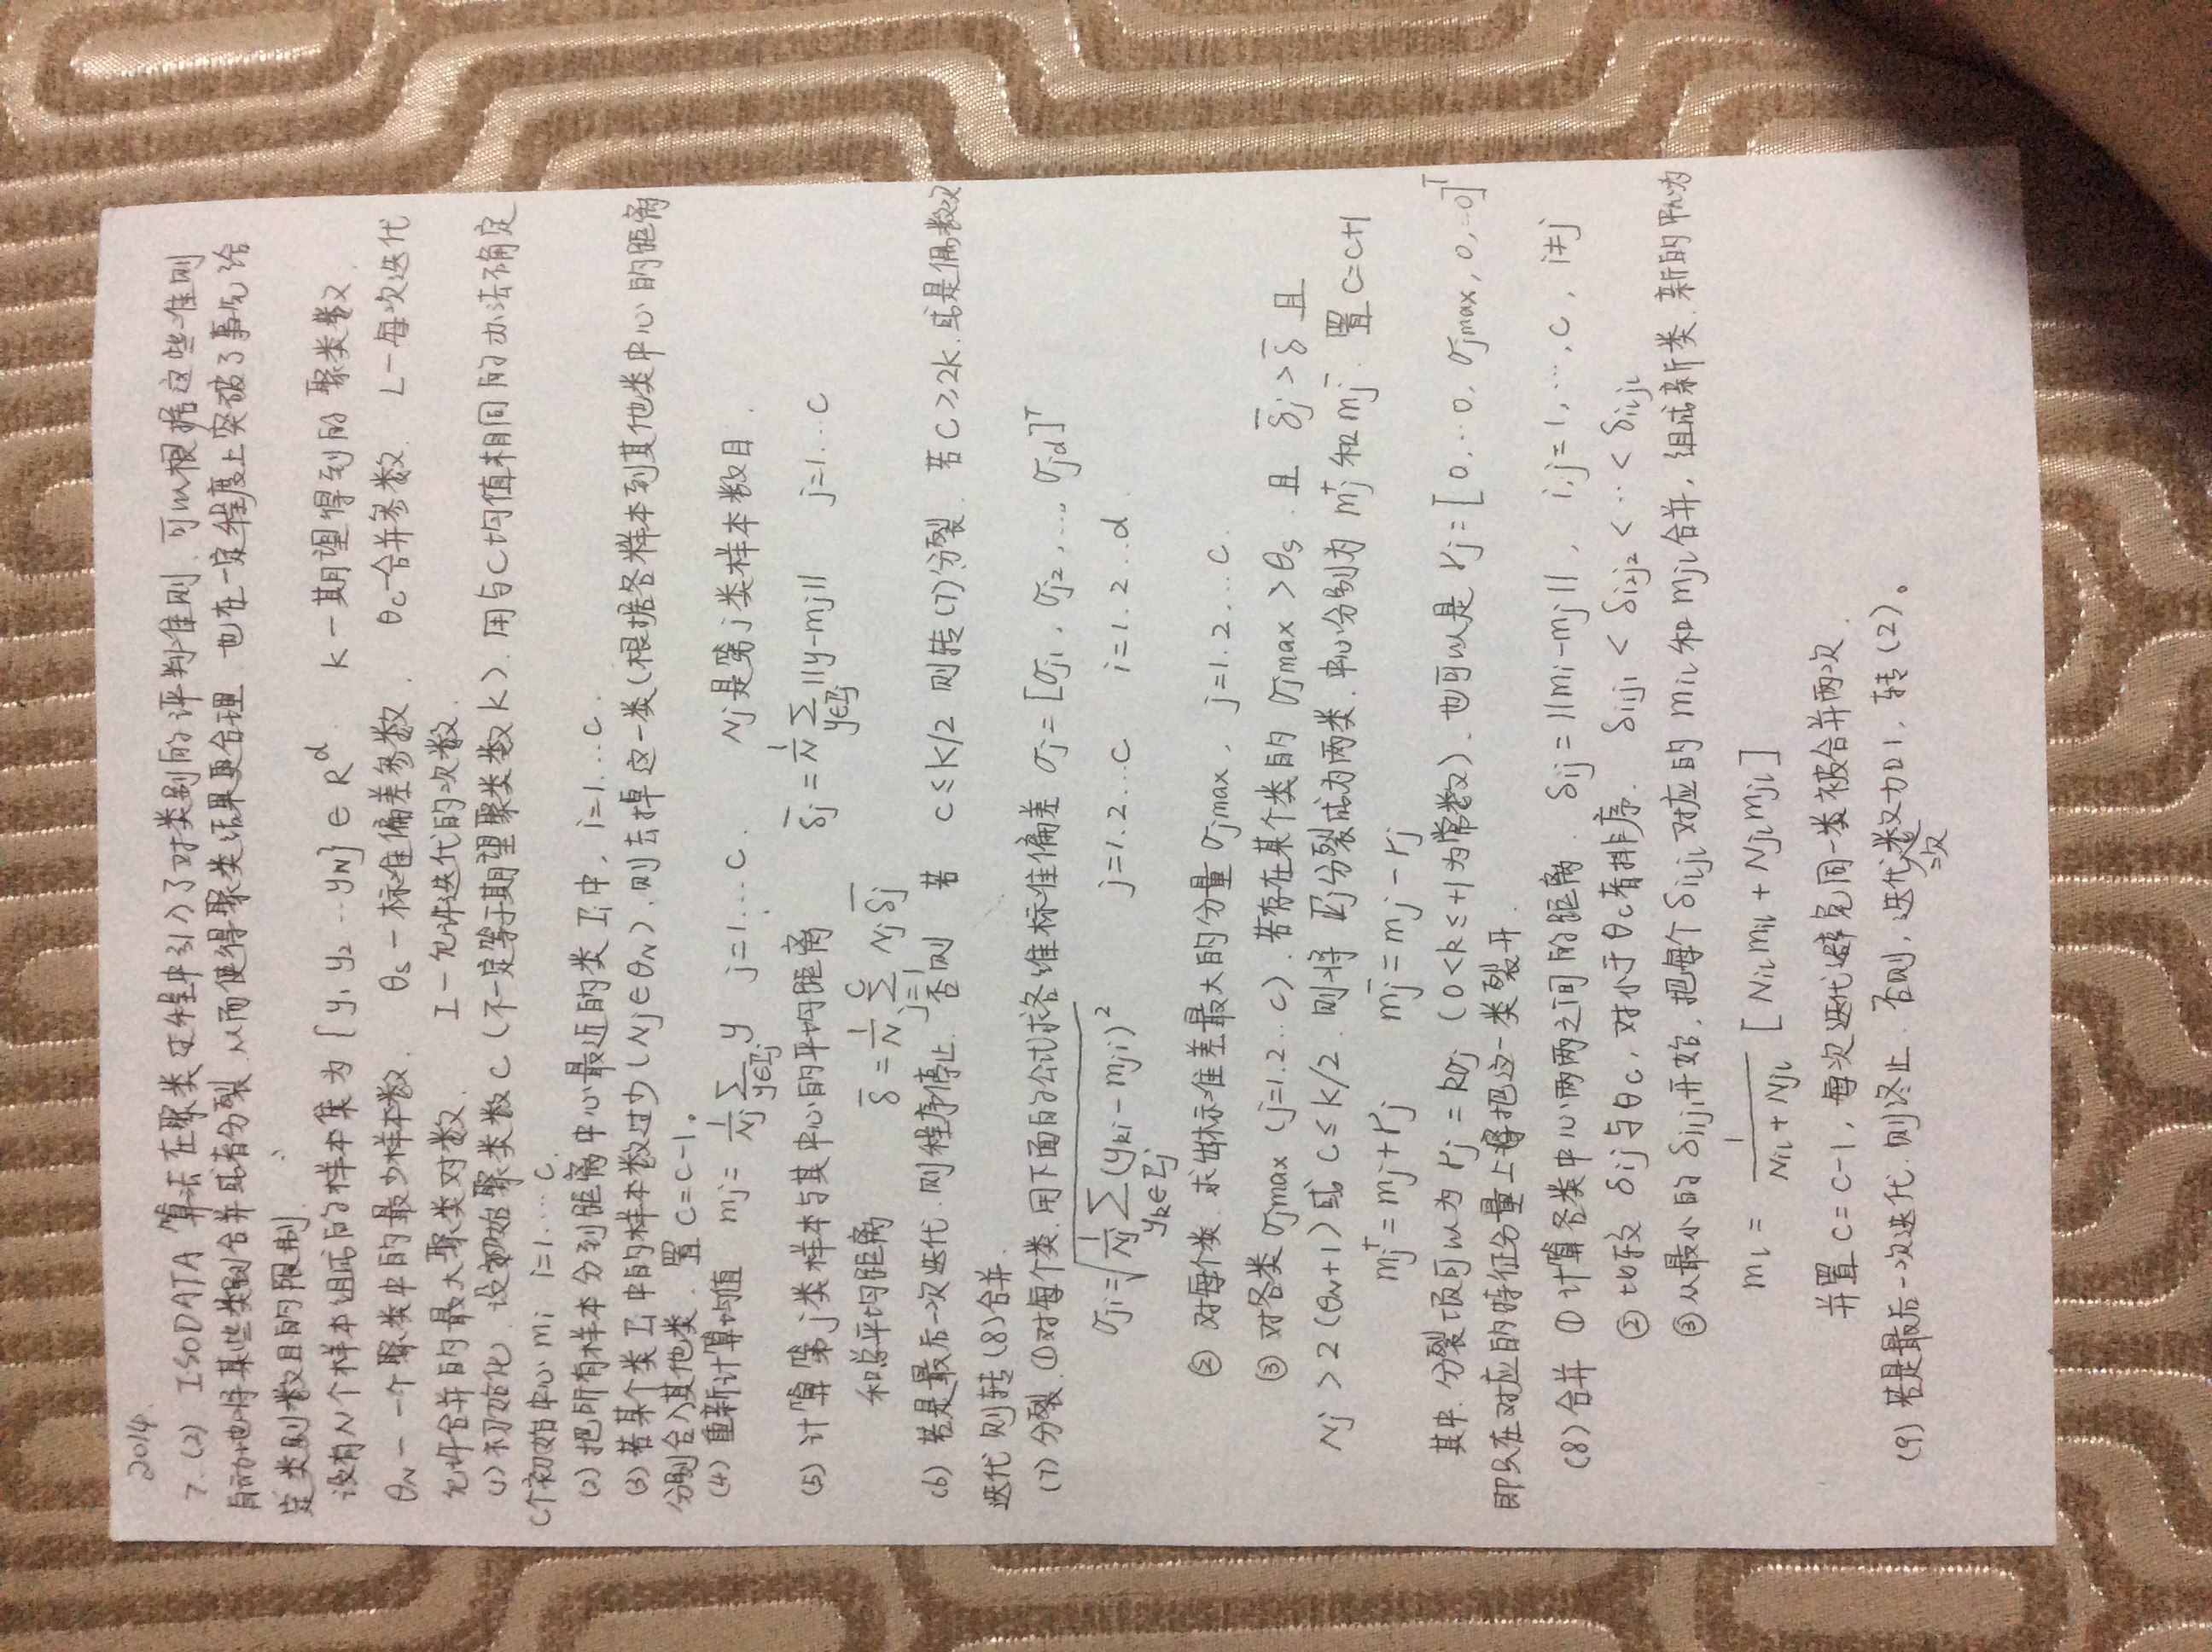 2014.
7. (2) ISODATA 算法在聚类过程中引入了对类别的评判准则. 可以根据这些准则
自动地将某些类别合并或者分裂. 从而使得聚类结果更合理. 也在一定程度上突破了事先给
定类别数目的限制.
设有N个样本组成的样本集为 {y₁ y₂ … yN} ∈ R^d. K — 期望得到的聚类数.
θN — 一个聚类中的最少样本数. θs — 标准偏差参数. θc — 合并参数. L — 每次迭代
允许合并的最大聚类对数. I — 允许迭代的次数.
(1) 初始化. 设初始聚类数C (不一定等于期望聚类数K). 用与C均值相同的办法确定
C个初始中心 mi i=1…C.
(2) 把所有样本分到距离中心最近的类 Γi 中, i=1…C.
(3) 若某个类 Γj 中的样本数过少 (Nj∈θN). 则去掉这一类 (根据各样本到其他类中心的距离
分别合入其他类. 置 C=C-1。
(4) 重新计算均值 mj = 1/Nj Σ_{y∈Γj} y j=1…C. Nj是第j类样本数目.
(5) 计算第j类样本与其中心的平均距离 δ̄j = 1/N Σ_{y∈Γj} ||y-mj|| j=1…C
和总平均距离 δ̄ = 1/N Σ_{j=1}^{C} Nj δ̄j
(6) 若是最后一次迭代. 则程序停止. 否则 若 C≤K/2 则转(7)分裂. 若 C≥2K. 或是偶数次
迭代则转(8)合并.
(7) 分裂. ①对每个类. 用下面的公式求各维标准偏差 σj = [σj1, σj2, … σjd]^T
σji = √(1/Nj Σ_{yk∈Γj} (yki - mji)²) j=1.2…C i=1.2…d.
② 对每个类. 求出标准差最大的分量 σjmax, j=1.2…C.
③ 对各类 σjmax (j=1.2…C). 若存在某个类的 σjmax > θs. 且 δ̄j > δ̄ 且
Nj > 2(θN+1) 或 C≤K/2. 则将 Γj 分裂成为两类. 中心分别为 mj⁺ 和 mj⁻. 置 C=C+1
mj⁺ = mj + rj mj⁻ = mj - rj
其中. 分裂项可以为 rj = kσj (0<k≤+1为常数). 也可以是 rj = [0…0, σjmax, 0,…0]^T
即只在对应的特征分量上把这一类裂开.
(8) 合并 ① 计算各类中心两两之间的距离. δij = ||mi-mj||, i,j=1,…,C, i≠j
② 比较 δij 与 θc, 对小于θc者排序. δi1j1 < δi2j2 < … < δiljl
③ 从最小的 δi1j1 开始, 把每个 δiljl 对应的 mil 和 mjl 合并, 组成新类. 新的中心为
ml = 1/(Nil + Njl) [Nil mil + Njl mjl]
并置 C=C-1, 每次迭代避免同一类被合并两次.
(9) 若是最后一次迭代. 则终止. 否则, 迭代次数加1, 转(2)。